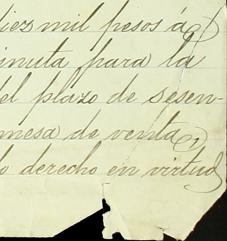 diez mil pesos á
minuta para la
el plazo de sesen-
mesa de venta,
o derecho en virtud